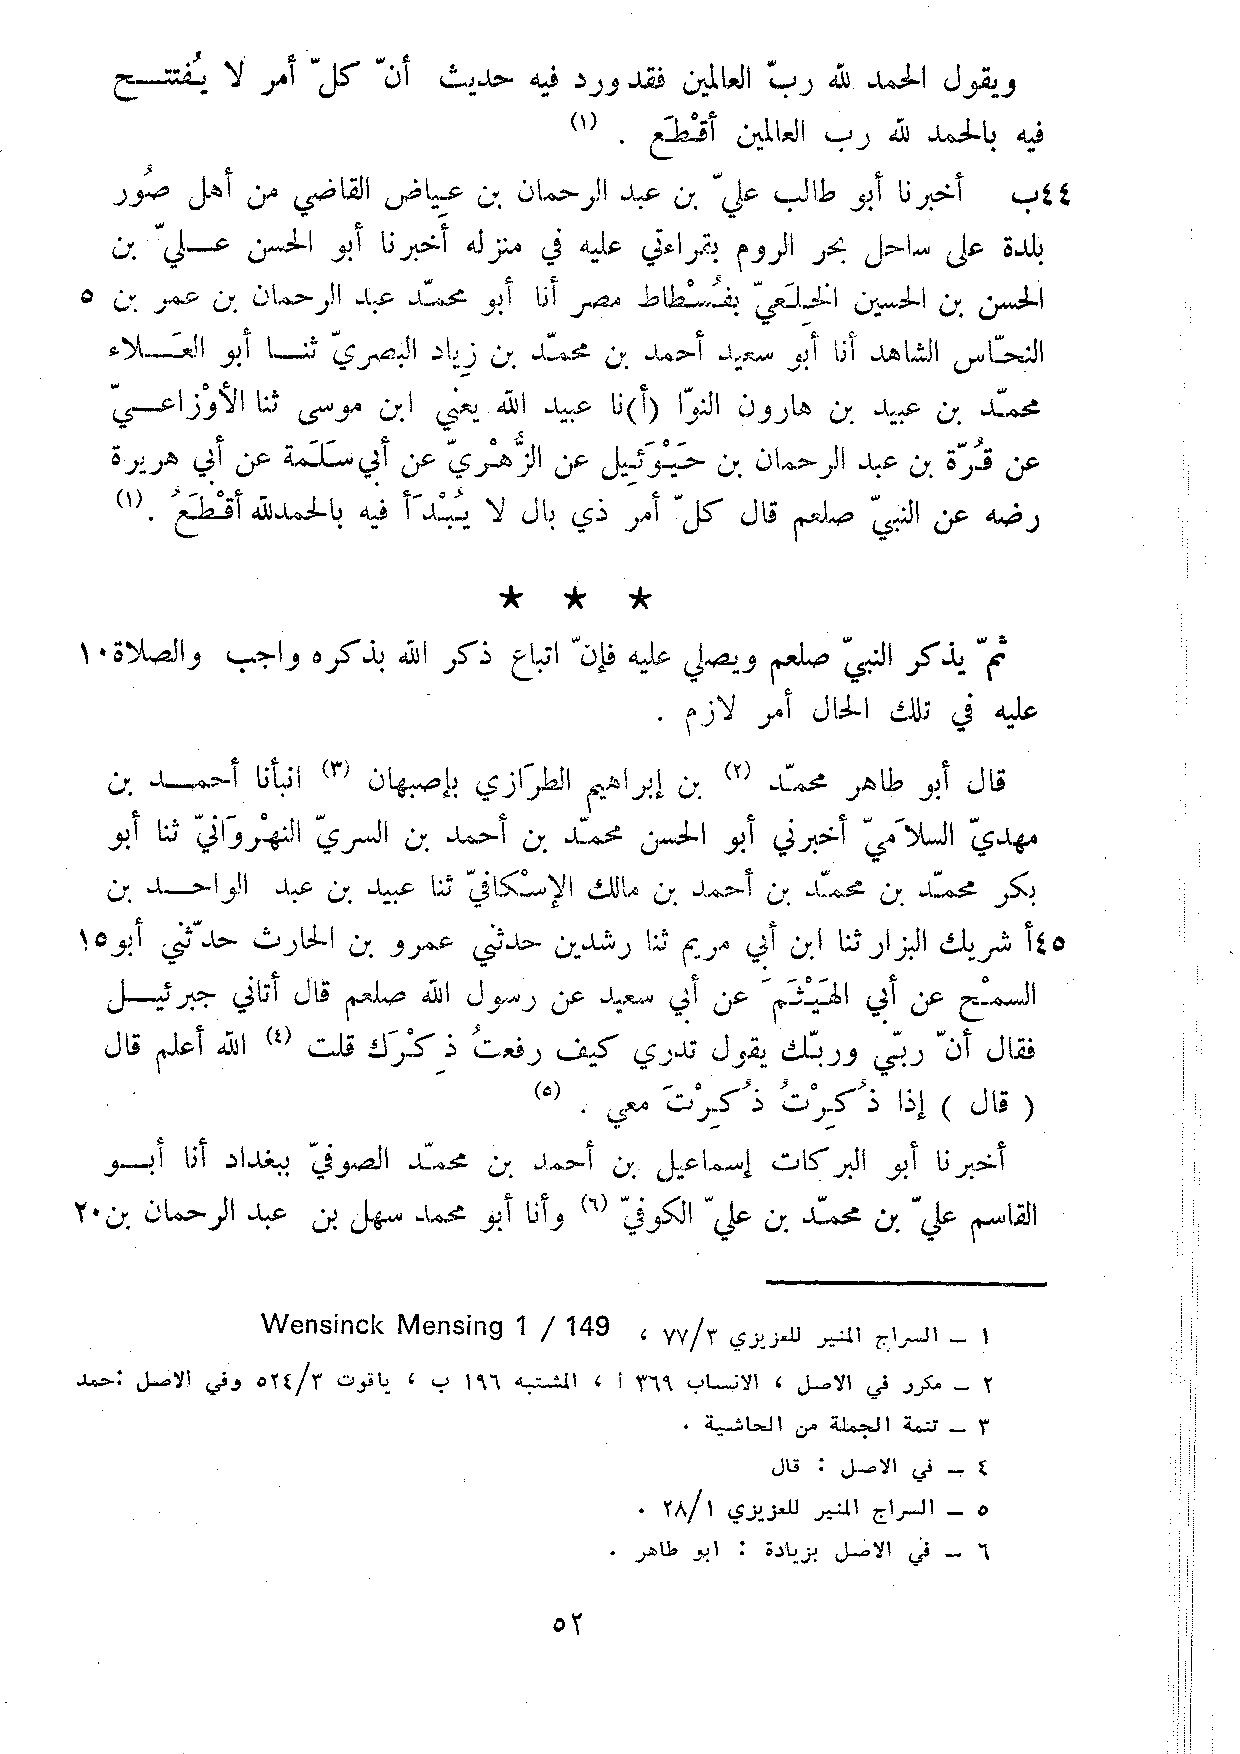 ويقول الحمد لله ربّ العالمين فقد ورد فيه حديث أنّ كلّ أمر لا يُفتتح
فيه بالحمد لله رب العالمين أقْطَع . (١)
٤٤ب أخبرنا أبو طالب عليّ بن عبد الرحمان بن عياض القاضي من أهل صُور
بلدة على ساحل بحر الروم بقراءتي عليه في منزله أخبرنا أبو الحسن علـيّ بن
الحسن بن الحسين الخِلَعيّ بفُسْطاط مصر أنا أبو محمّد عبد الرحمان بن عمر بن ٥
النحّاس الشاهد أنا أبو سعيد أحمد بن محمّد بن زياد البصريّ ثنا أبو العَلاء
محمّد بن عبيد بن هارون النوّا (أ)نا عبيد الله يعني ابن موسى ثنا الأوْزاعيّ
عن قُرّة بن عبد الرحمان بن حَيْوَئيل عن الزُّهْريّ عن أبي سَلَمة عن أبي هريرة
رضه عن النبيّ صلعم قال كلّ أمر ذي بال لا يُبْدَأ فيه بالحمدلله أقْطَعُ . (١)
★ ★ ★
ثمّ يذكر النبيّ صلعم ويصلي عليه فإنّ اتباع ذكر الله بذكره واجب والصلاة ١٠
عليه في تلك الحال أمر لازم .
قال أبو طاهر محمّد (٢) بن إبراهيم الطرَازي بإصبهان (٣) انبأنا أحمد بن
مهديّ السلاَميّ أخبرني أبو الحسن محمّد بن أحمد بن السريّ النهْروَانيّ ثنا أبو
بكر محمّد بن محمّد بن أحمد بن مالك الإسْكافيّ ثنا عبيد بن عبد الواحد بن
٤٥أ شريك البزار ثنا ابن أبي مريم ثنا رشدين حدثني عمرو بن الحارث حدّثني أبو ١٥
السمْح عن أبي الهَيْثَم عن أبي سعيد عن رسول الله صلعم قال أتاني جبرئيل
فقال أنّ ربّي وربّك يقول تدري كيف رفعتُ ذِكْرَك قلت (٤) الله أعلم قال
( قال ) إذا ذُكِرْتُ ذُكِرْتَ معي . (٥)
أخبرنا أبو البركات إسماعيل بن أحمد بن محمّد الصوفيّ ببغداد أنا أبو
القاسم عليّ بن محمّد بن عليّ الكوفيّ (٦) وأنا أبو محمد سهل بن عبد الرحمان بن ٢٠
١ – السراج المنير للعزيزي ٧٧/٣ ، Wensinck Mensing 1 / 149
٢ – مكرر في الاصل ، الانساب ٣٦٩ أ ، المشتبه ١٩٦ ب ، ياقوت ٥٢٤/٣ وفي الاصل :حمد
٣ – تتمة الجملة من الحاشية .
٤ – في الاصل : قال
٥ – السراج المنير للعزيزي ٢٨/١ .
٦ – في الاصل بزيادة : ابو طاهر .
٥٢